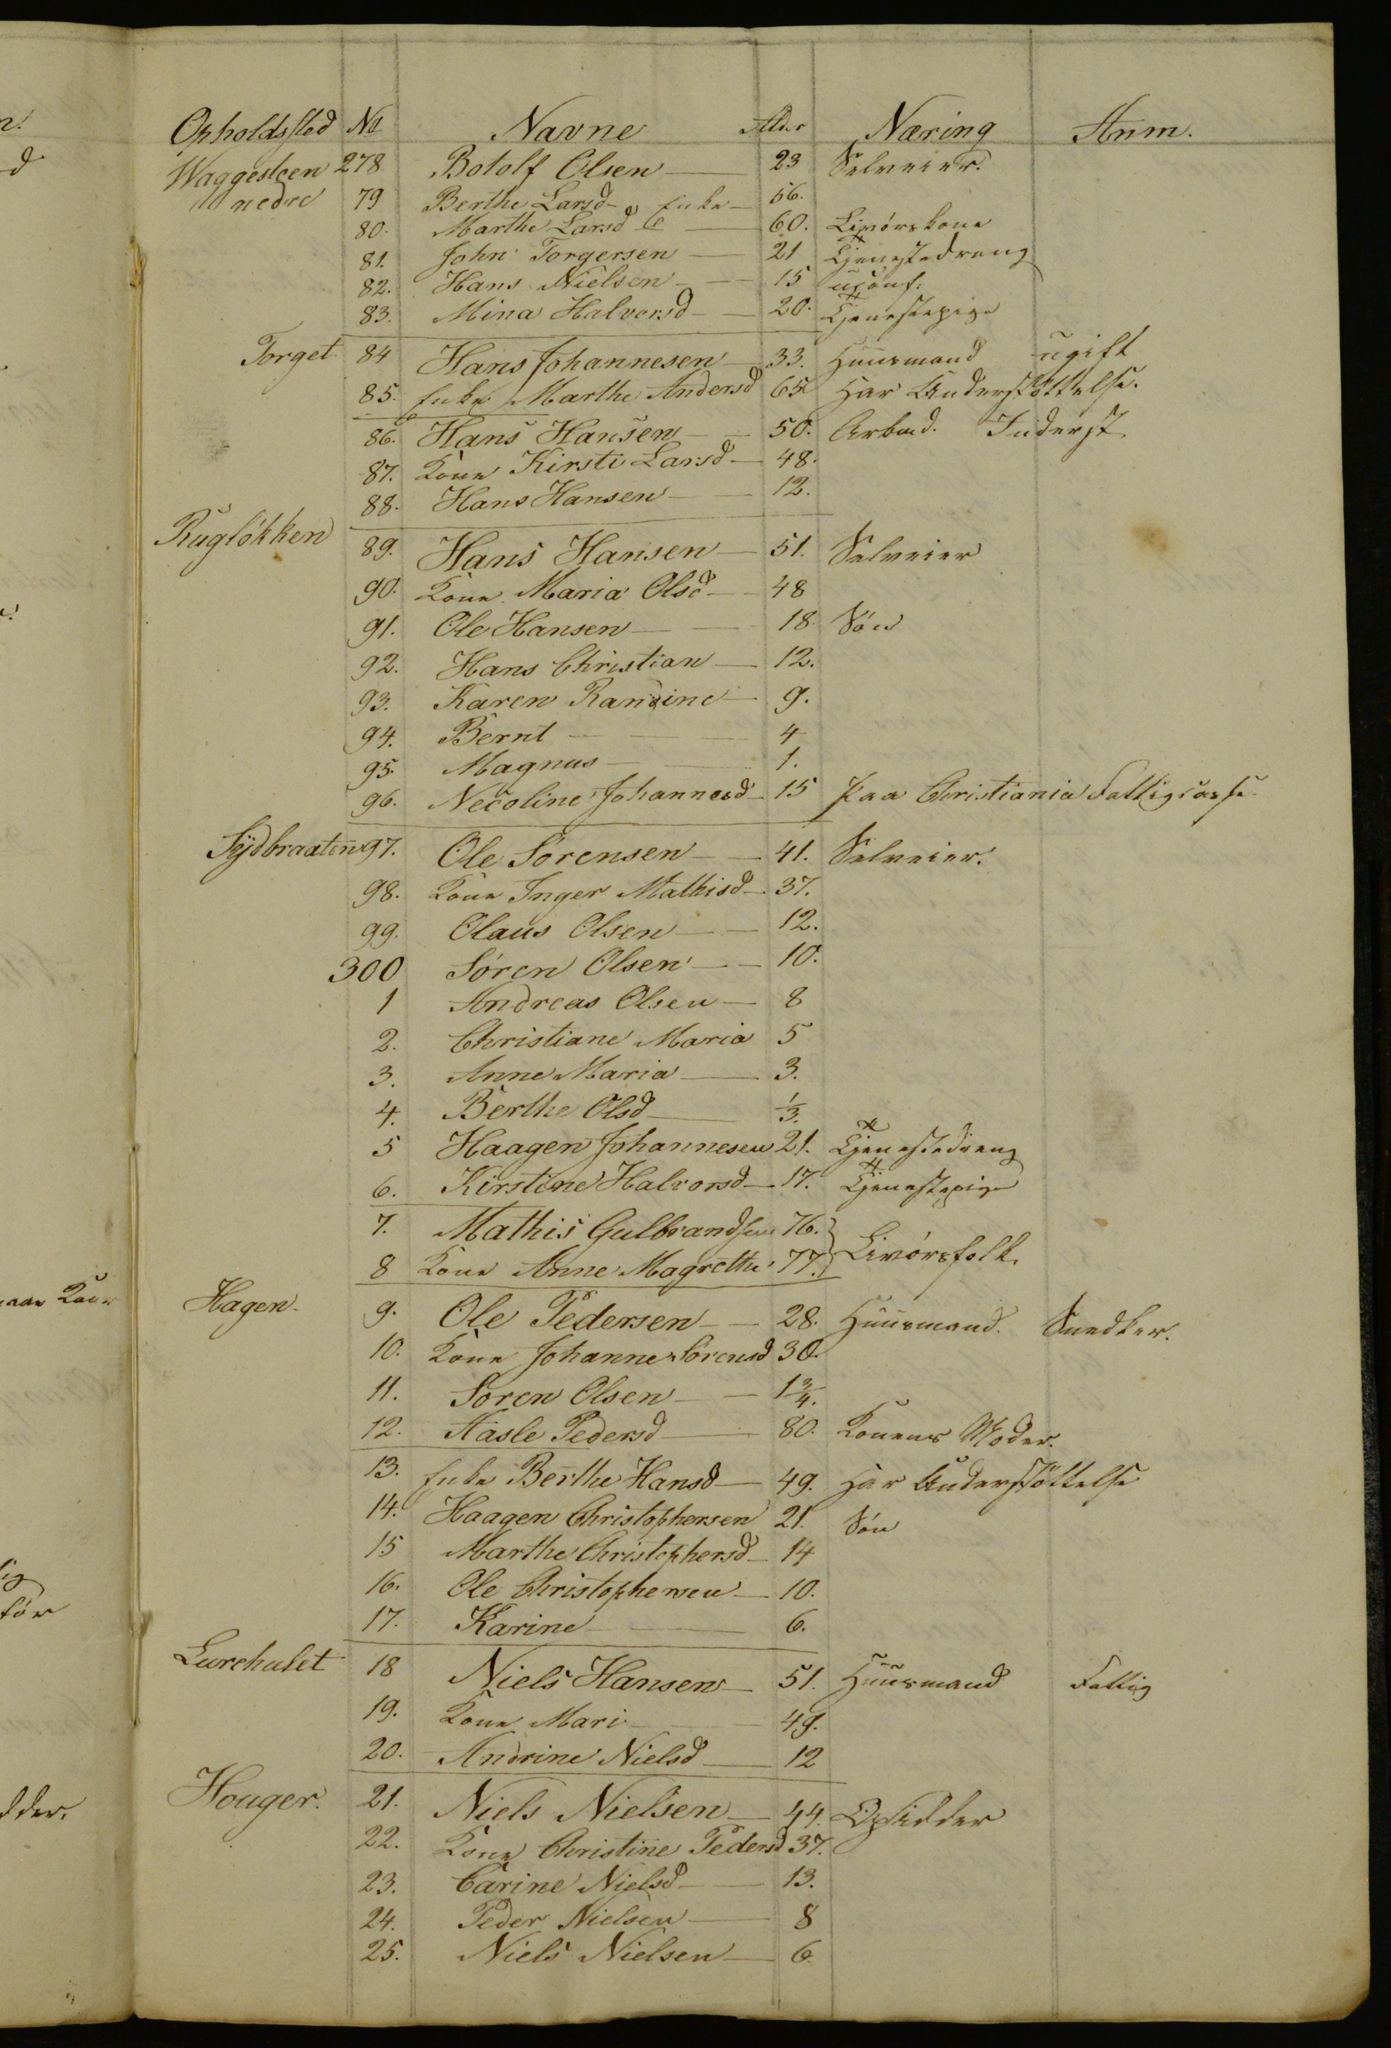 Opholdssted No Navne Alder Næring Anm.
Waggesteen 278 Botolf Olsen 23 Selveier.
nedre 79 Berthe Larsd Enke 56.
80. Marthe Larsd 60. Livörskone
81. John Torgersen 21 Tjenestedreng
82. Hans Nielsen 15 ukonf.
83. Mina Halvorsd 20. Tjenestepige
Torget 84 Hans Johannesen 33. Huusmand ugift
85. Enke Marthe Andersd 65 Har Understøttelse.
86. Hans Hansen 50. Arbeid. Inderst
87. Kone Kirsti Larsd 48.
88. Hans Hansen 12.
Rugløkken 89. Hans Hansen 51. Selveier
90. Kone Maria Olsd 48
91. Ole Hansen 18. Sön
92. Hans Christian 12.
93. Karen Randine 9.
94. Bernt 4
95. Magnus 1.
96. Necoline Johannesd 15 paa Christiania Fattigcasse
Sydbraaten 97. Ole Sorensen 41. Selveier.
98. Kone Inger Mathisd 37.
99. Olaus Olsen 12.
300 Sören Olsen 10.
1 Andreas Olsen 8
2. Christiane Maria 5
3. Anne Maria 3.
4. Berthe Olsd 1/3.
5 Haagen Johannesen 21. Tjenestedreng
6. Kirstine Halvorsd 17. Tjenestepige
7. Mathis Gulbrandsen 76. Livörsfolk.
8 Kone Anne Magrethe 77.
Hagen. 9. Ole Pedersen 28. Huusmand. Snedker.
10. Kone Johanne Sörensd 30.
11. Soren Olsen 1 3/4.
12. Aasle Pedersd 80. Konens Moder.
13. Enke Berthe Hansd 49. Har Understøttelse
14. Haagen Christophersen 21. Sön
15 Marthe Christophersd 14
16. Ole Christophersen 10.
17. Karine 6.
Lurehulet 18 Niels Hansen 51. Huusmand Fattig
19. Kone Mari 49.
20. Andrine Nielsd 12
Houger. 21. Niels Nielsen 44. Opsidder
22. Kone Christine Pedersd 37.
23. Carine Nielsd 13.
24. Peder Nielsen 8
25. Niels Nielsen 6.